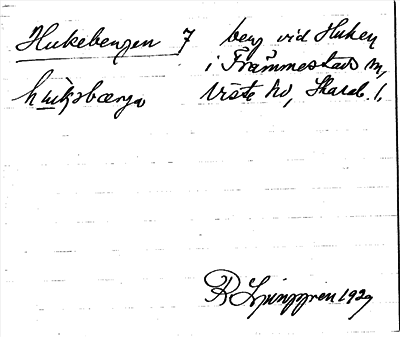 Hukebergen 7 berg vid Huken
i Främmestads sn,
Viste hd, Skarab. l.
R Ljunggren 1929